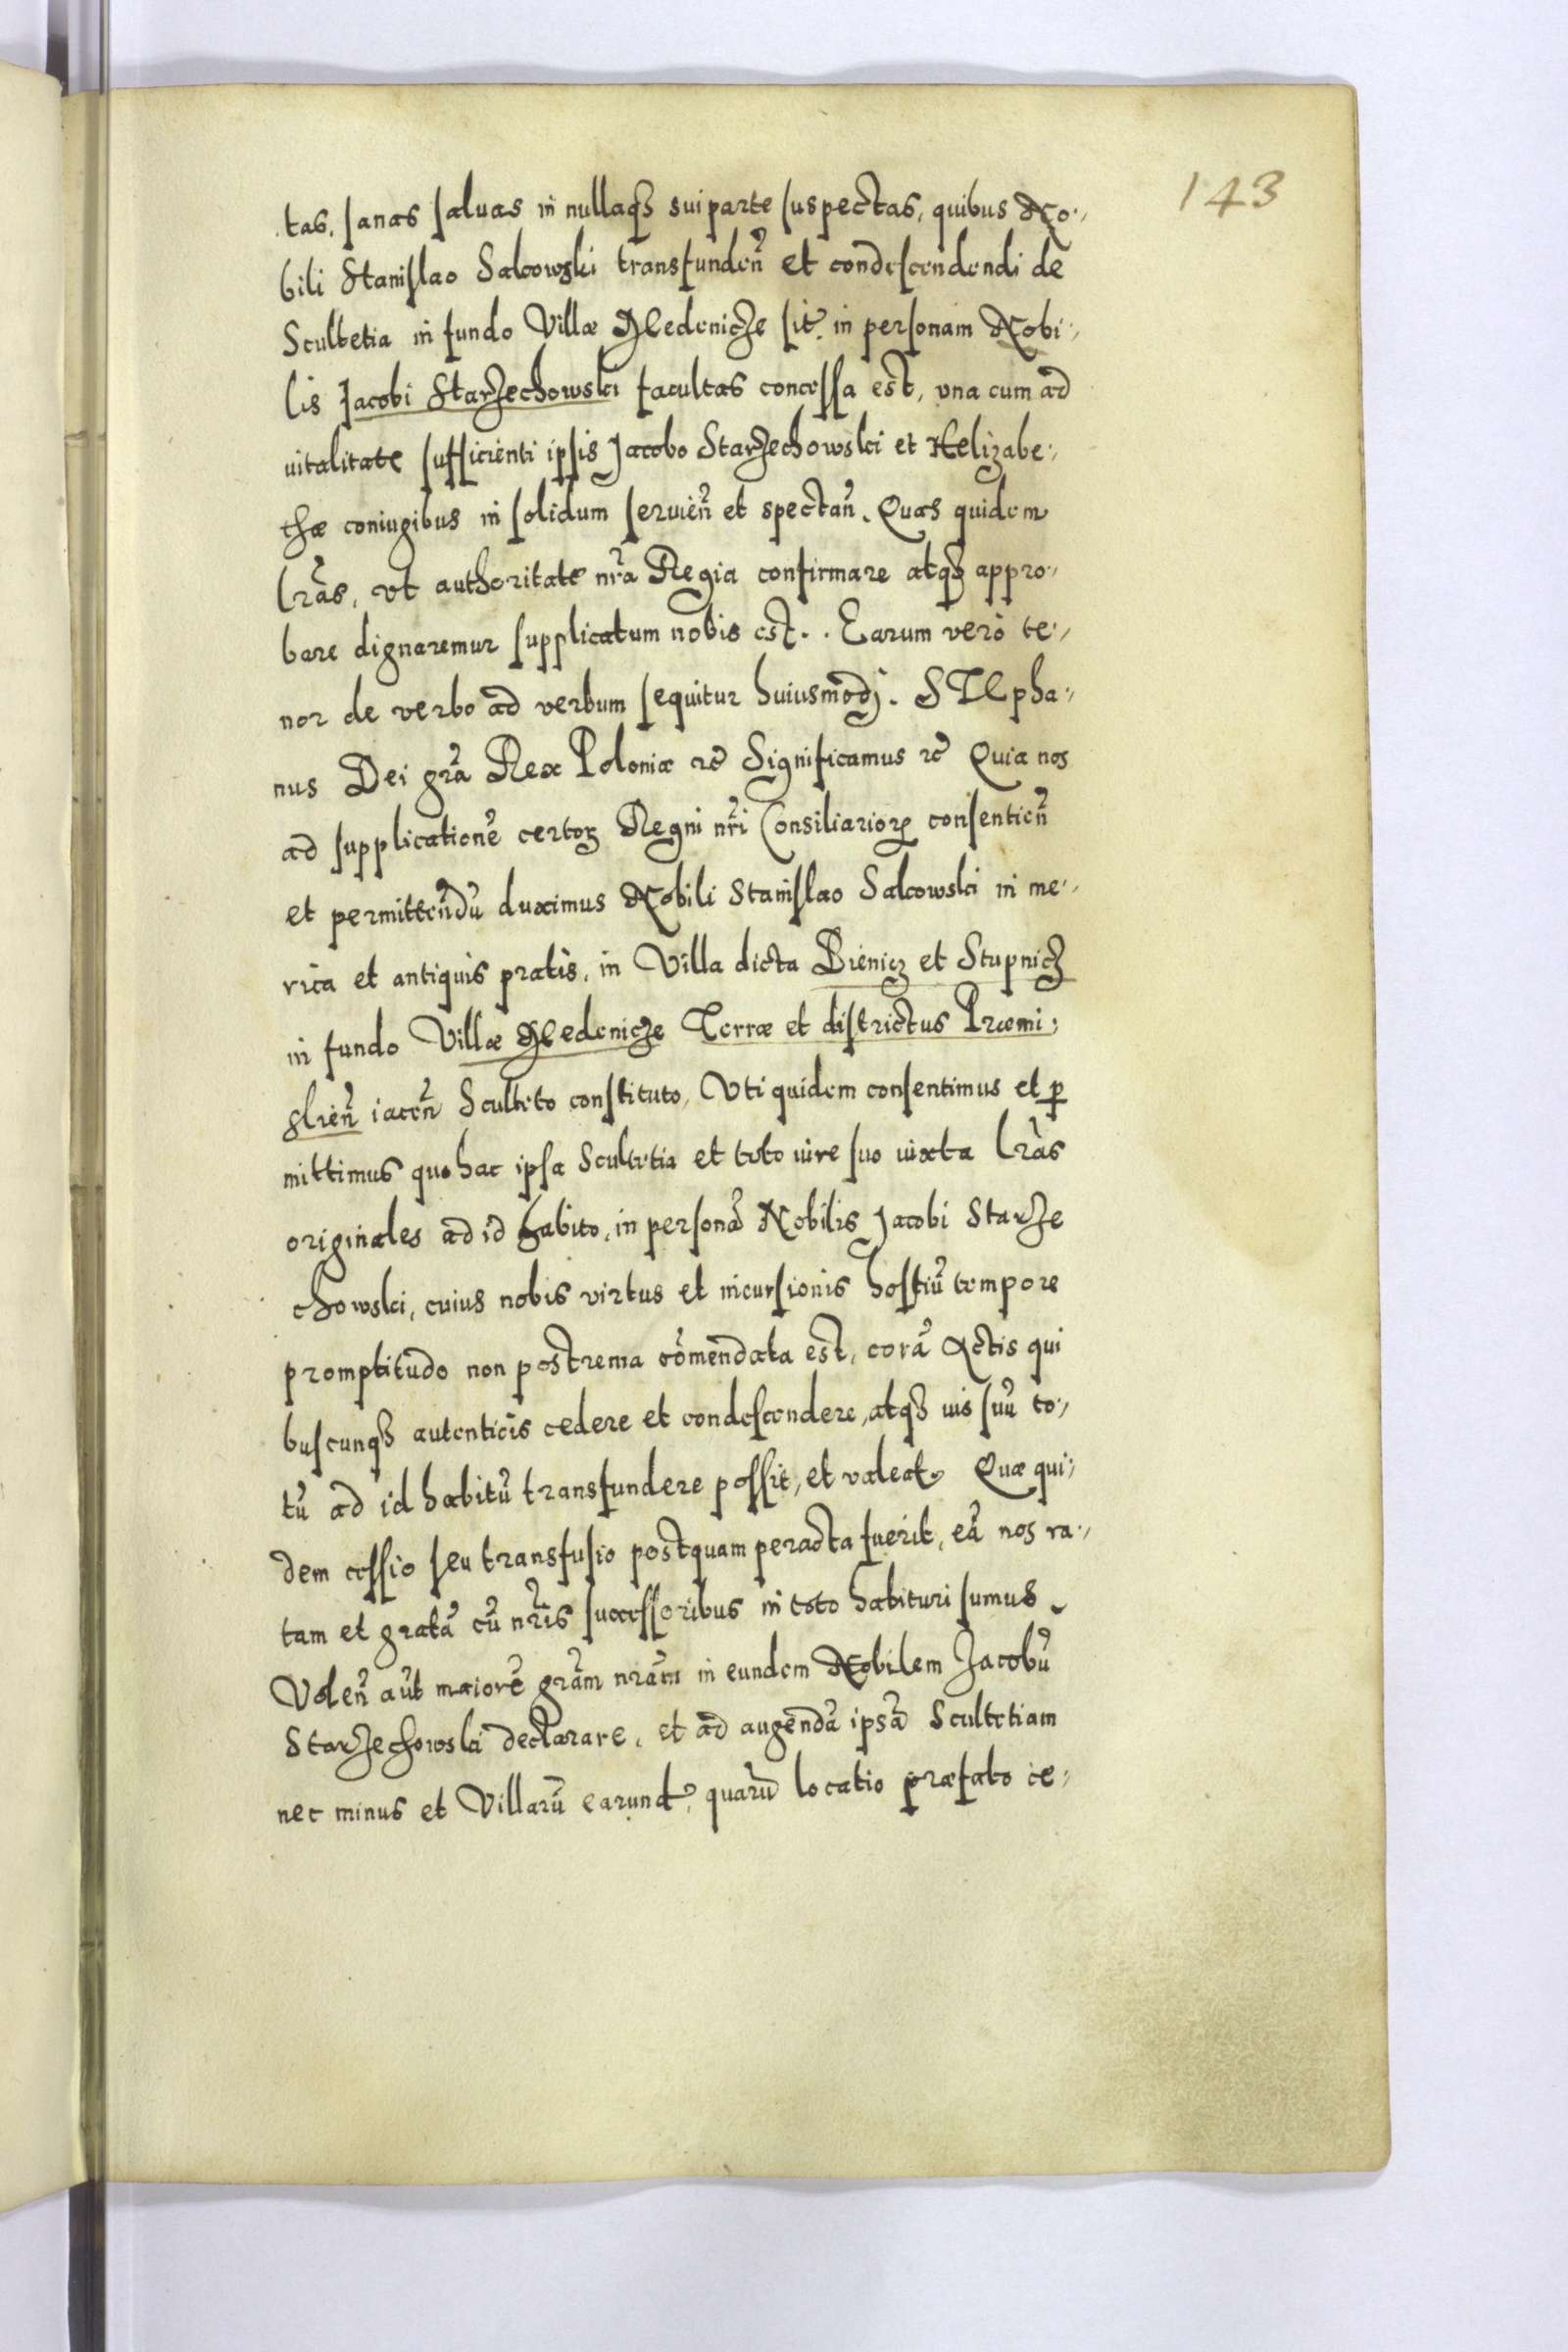 143
tas, sanas saluas in nullaqȝ sui parte suspectas, quibus No-
bili Stanislao Sakowski transfundeñ et condescendendi de
Scultetia in fundo Villæ Medenicze sit. in personam Nobi-
lis Jacobi Starzechowski facultas concessa est, vna cum ad
uitalitate sufficienti ipsis Jacobo Starzechowski et Helizabe-
thæ coniugibus in solidum seruieñ et spectañ. Quas quidem
lr̃as, vt authoritate nr̃a Regia confirmare atqȝ appro-
bare dignaremur supplicatum nobis est. Earum vero te-
nor de verbo ad verbum sequitur huiusmodj. STEpha-
nus Dei gr̃a Rex Poloniæ ꝛc̃ Significamus ꝛc̃ Quia nos
ad supplicationẽ certoꝝ Regni nr̃i Consiliarioꝝ consentieñ
et permittendũ duximus Nobili Stanislao Sakowski in me-
rica et antiquis pratis, in Villa dicta Bienicz et Stupnicz
in fundo Villæ Medenicze Terræ et districtus Præmi-
slieñ iaceñ Sculteto constituto, Vti quidem consentimus et ꝑ
mittimus quo hac ipsa Scultetia et toto iure suo iuxta lr̃as
originales ad id habito, in personã Nobilis Jacobi Starze
chowski, cuius nobis virtus et incursionis hostiũ tempore
promptitudo non postrema com̃endata est, corã Actis qui
buscunqȝ autenticis cedere et condescendere, atqȝ ius suũ to-
tũ ad id habitũ transfundere possit, et valeat. Quæ qui-
dem cessio seu transfusio postquam peracta fuerit, eã nos ra-
tam et gratã cũ nr̃is successoribus in toto habituri sumus.
Voleñ aũt maiorẽ gr̃am nr̃am in eundem Nobilem Jacobũ
Starzechowski declarare, et ad augendã ipsã Scultetiam
nec minus et Villarũ earund, quarũ locatio præfato ce-